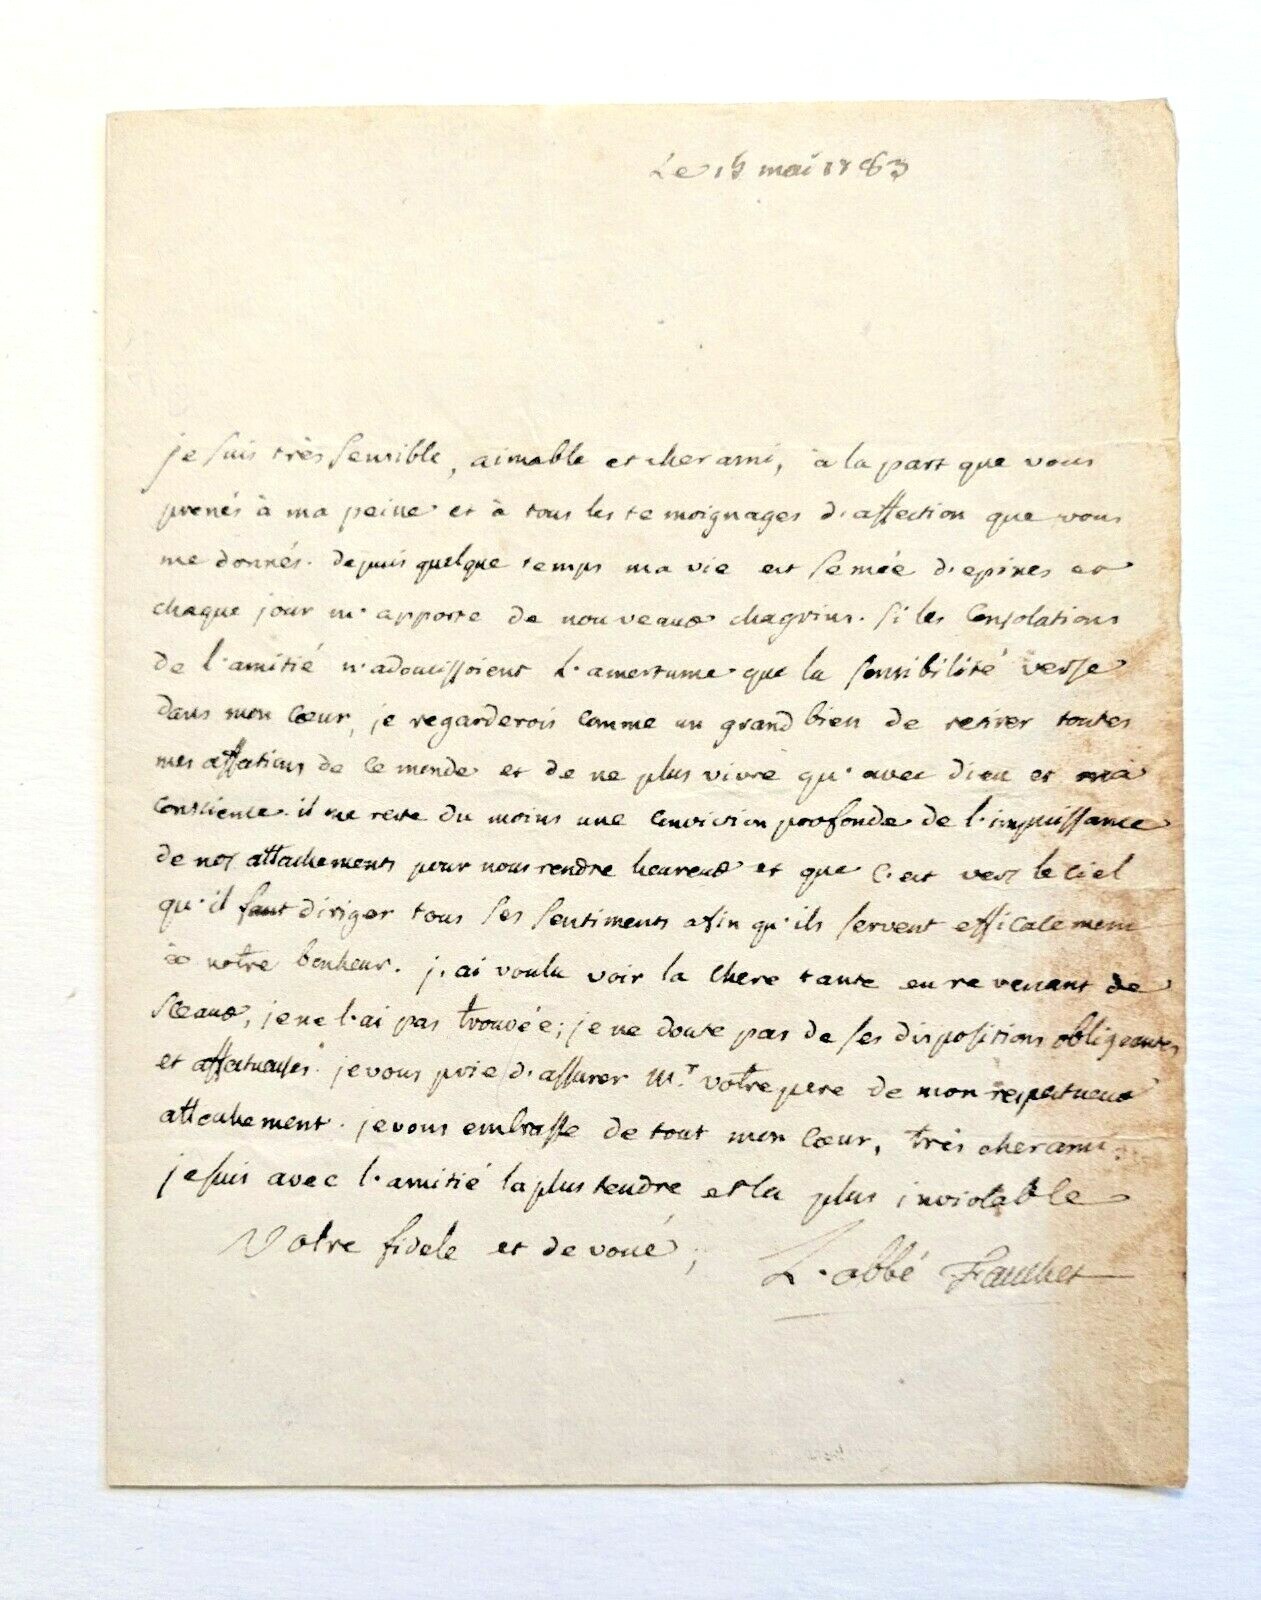 Le 15 mai 1783
je suis très sensible, aimable et cher ami, à la part que vous
prenés à ma peine et à tous les temoignages d'affection que vous
me donnés. depuis quelque temps ma vie est semée d'epines et
chaque jour m'apporte de nouveaux chagrins. si les consolations
de l'amitié n'adoucissoient l'amertume que la sensibilité verse
dans mon cœur, je regarderois comme un grand bien de retirer toutes
mes affections de ce monde et de ne plus vivre qu'avec dieu et ma
conscience. il me reste du moins une conviction profonde de l'impuissance
de nos attachements pour nous rendre heureux et que c'est vers le ciel
qu'il faut diriger tous ses sentiments afin qu'ils servent efficacement
à notre bonheur. j'ai voulu voir la chere tante en revenant de
Sceaux, je ne l'ai pas trouvée; je ne doute pas de ses dispositions obligeantes
et affectueuses. je vous prie d'assurer Mr. votre pere de mon respectueux
attachement. je vous embrasse de tout mon cœur, très cher ami.
je suis avec l'amitié la plus tendre et la plus inviolable
Votre fidele et devoué,
L'abbé Fauchet